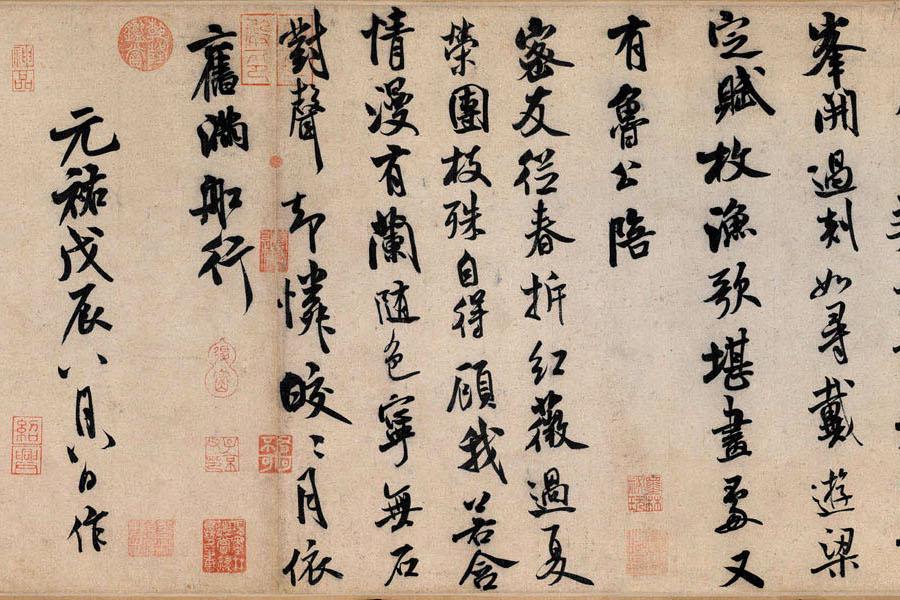 峯開過剡如尋戴遊梁
定賦枚漁歌堪畫處又
有魯公陪
密友從春拆紅薇過夏
榮團枝殊自得顧我若含
情漫有蘭隨色寧無石
對聲却憐皎〻月依
舊滿船行
元祐戊辰八月八日作
神品
紹興